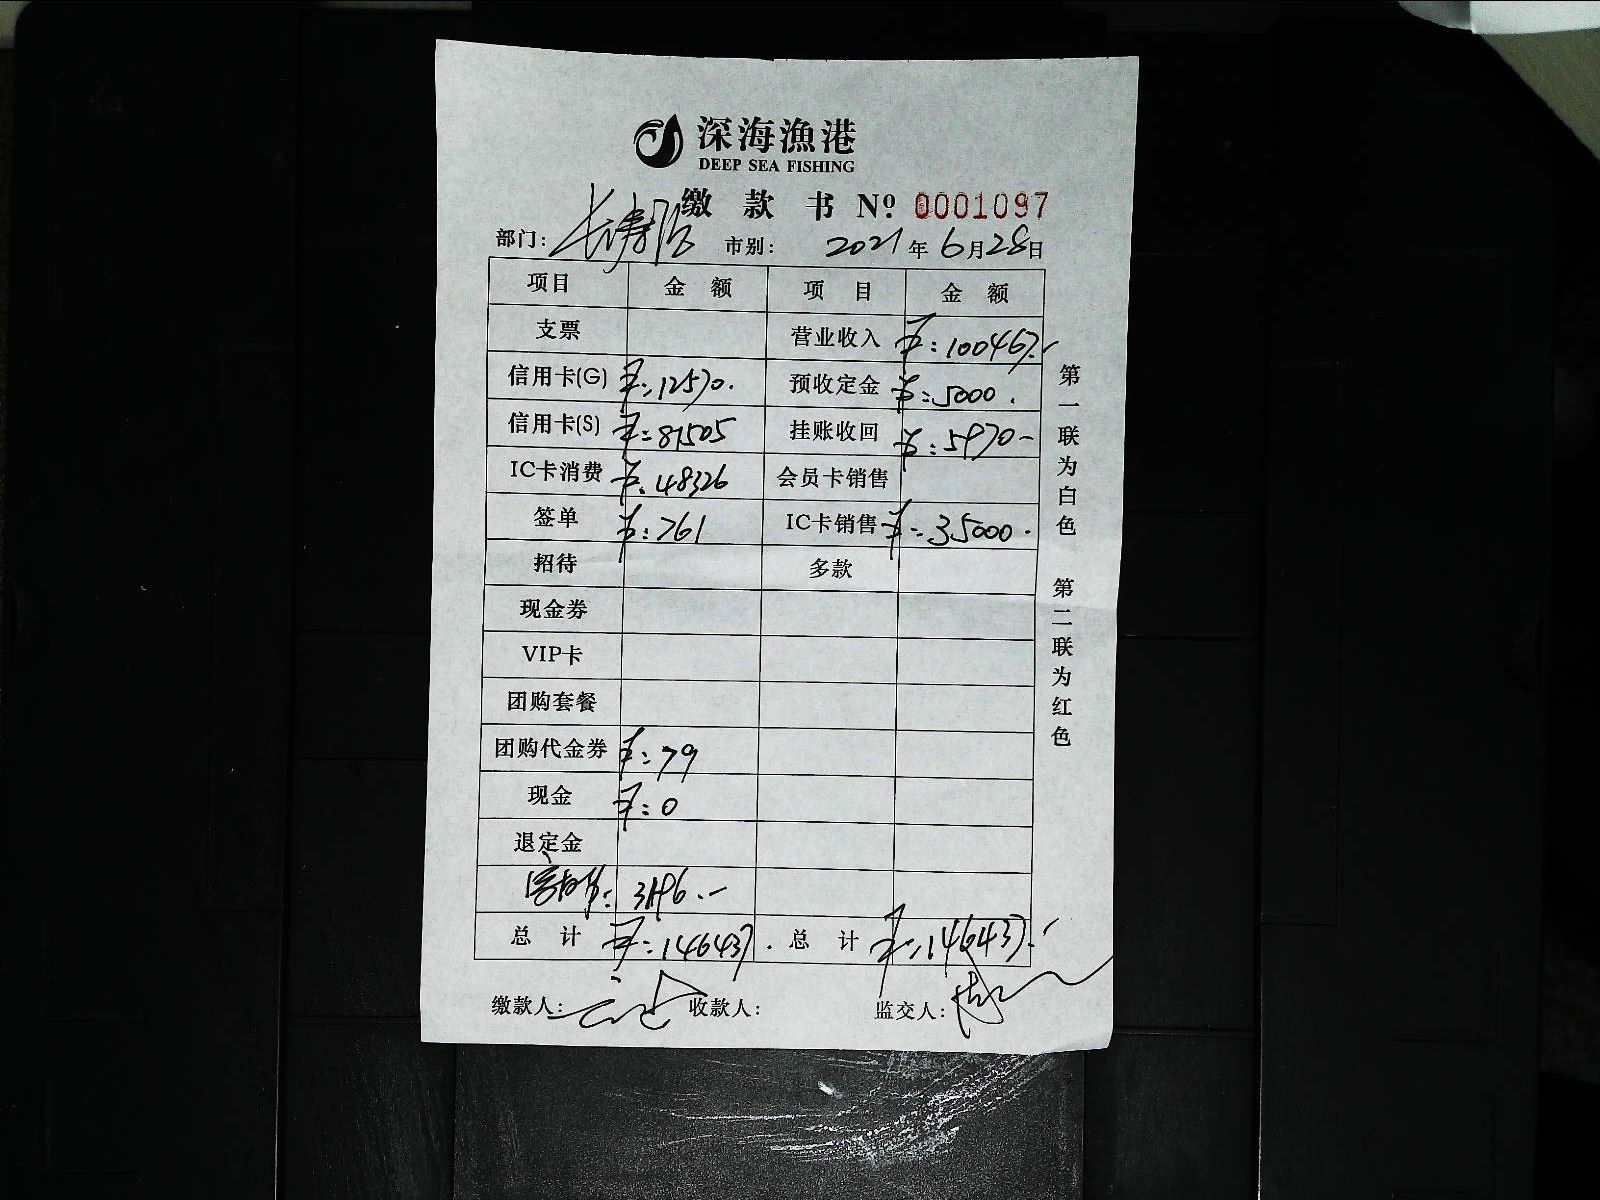 深海漁港
DEEP SEA FISHING
缴款书 Nº 0001097
部门: 长寿路 市别: 2021年6月28日
项目 金额 项目 金额
支票 营业收入 ¥:100467.-
信用卡(G) ¥:12570. 预收定金 ¥:5000.
信用卡(S) ¥:81505 挂账收回 ¥:5970-
IC卡消费 ¥:48326 会员卡销售
签单 ¥:761 IC卡销售 ¥:35000.
招待 多款
现金券
VIP卡
团购套餐
团购代金券 ¥:79
现金 ¥:0
退定金
3196.-
总计 ¥:146437. 总计 ¥:146437.-
缴款人: 收款人: 监交人:
第一联为白色 第二联为红色